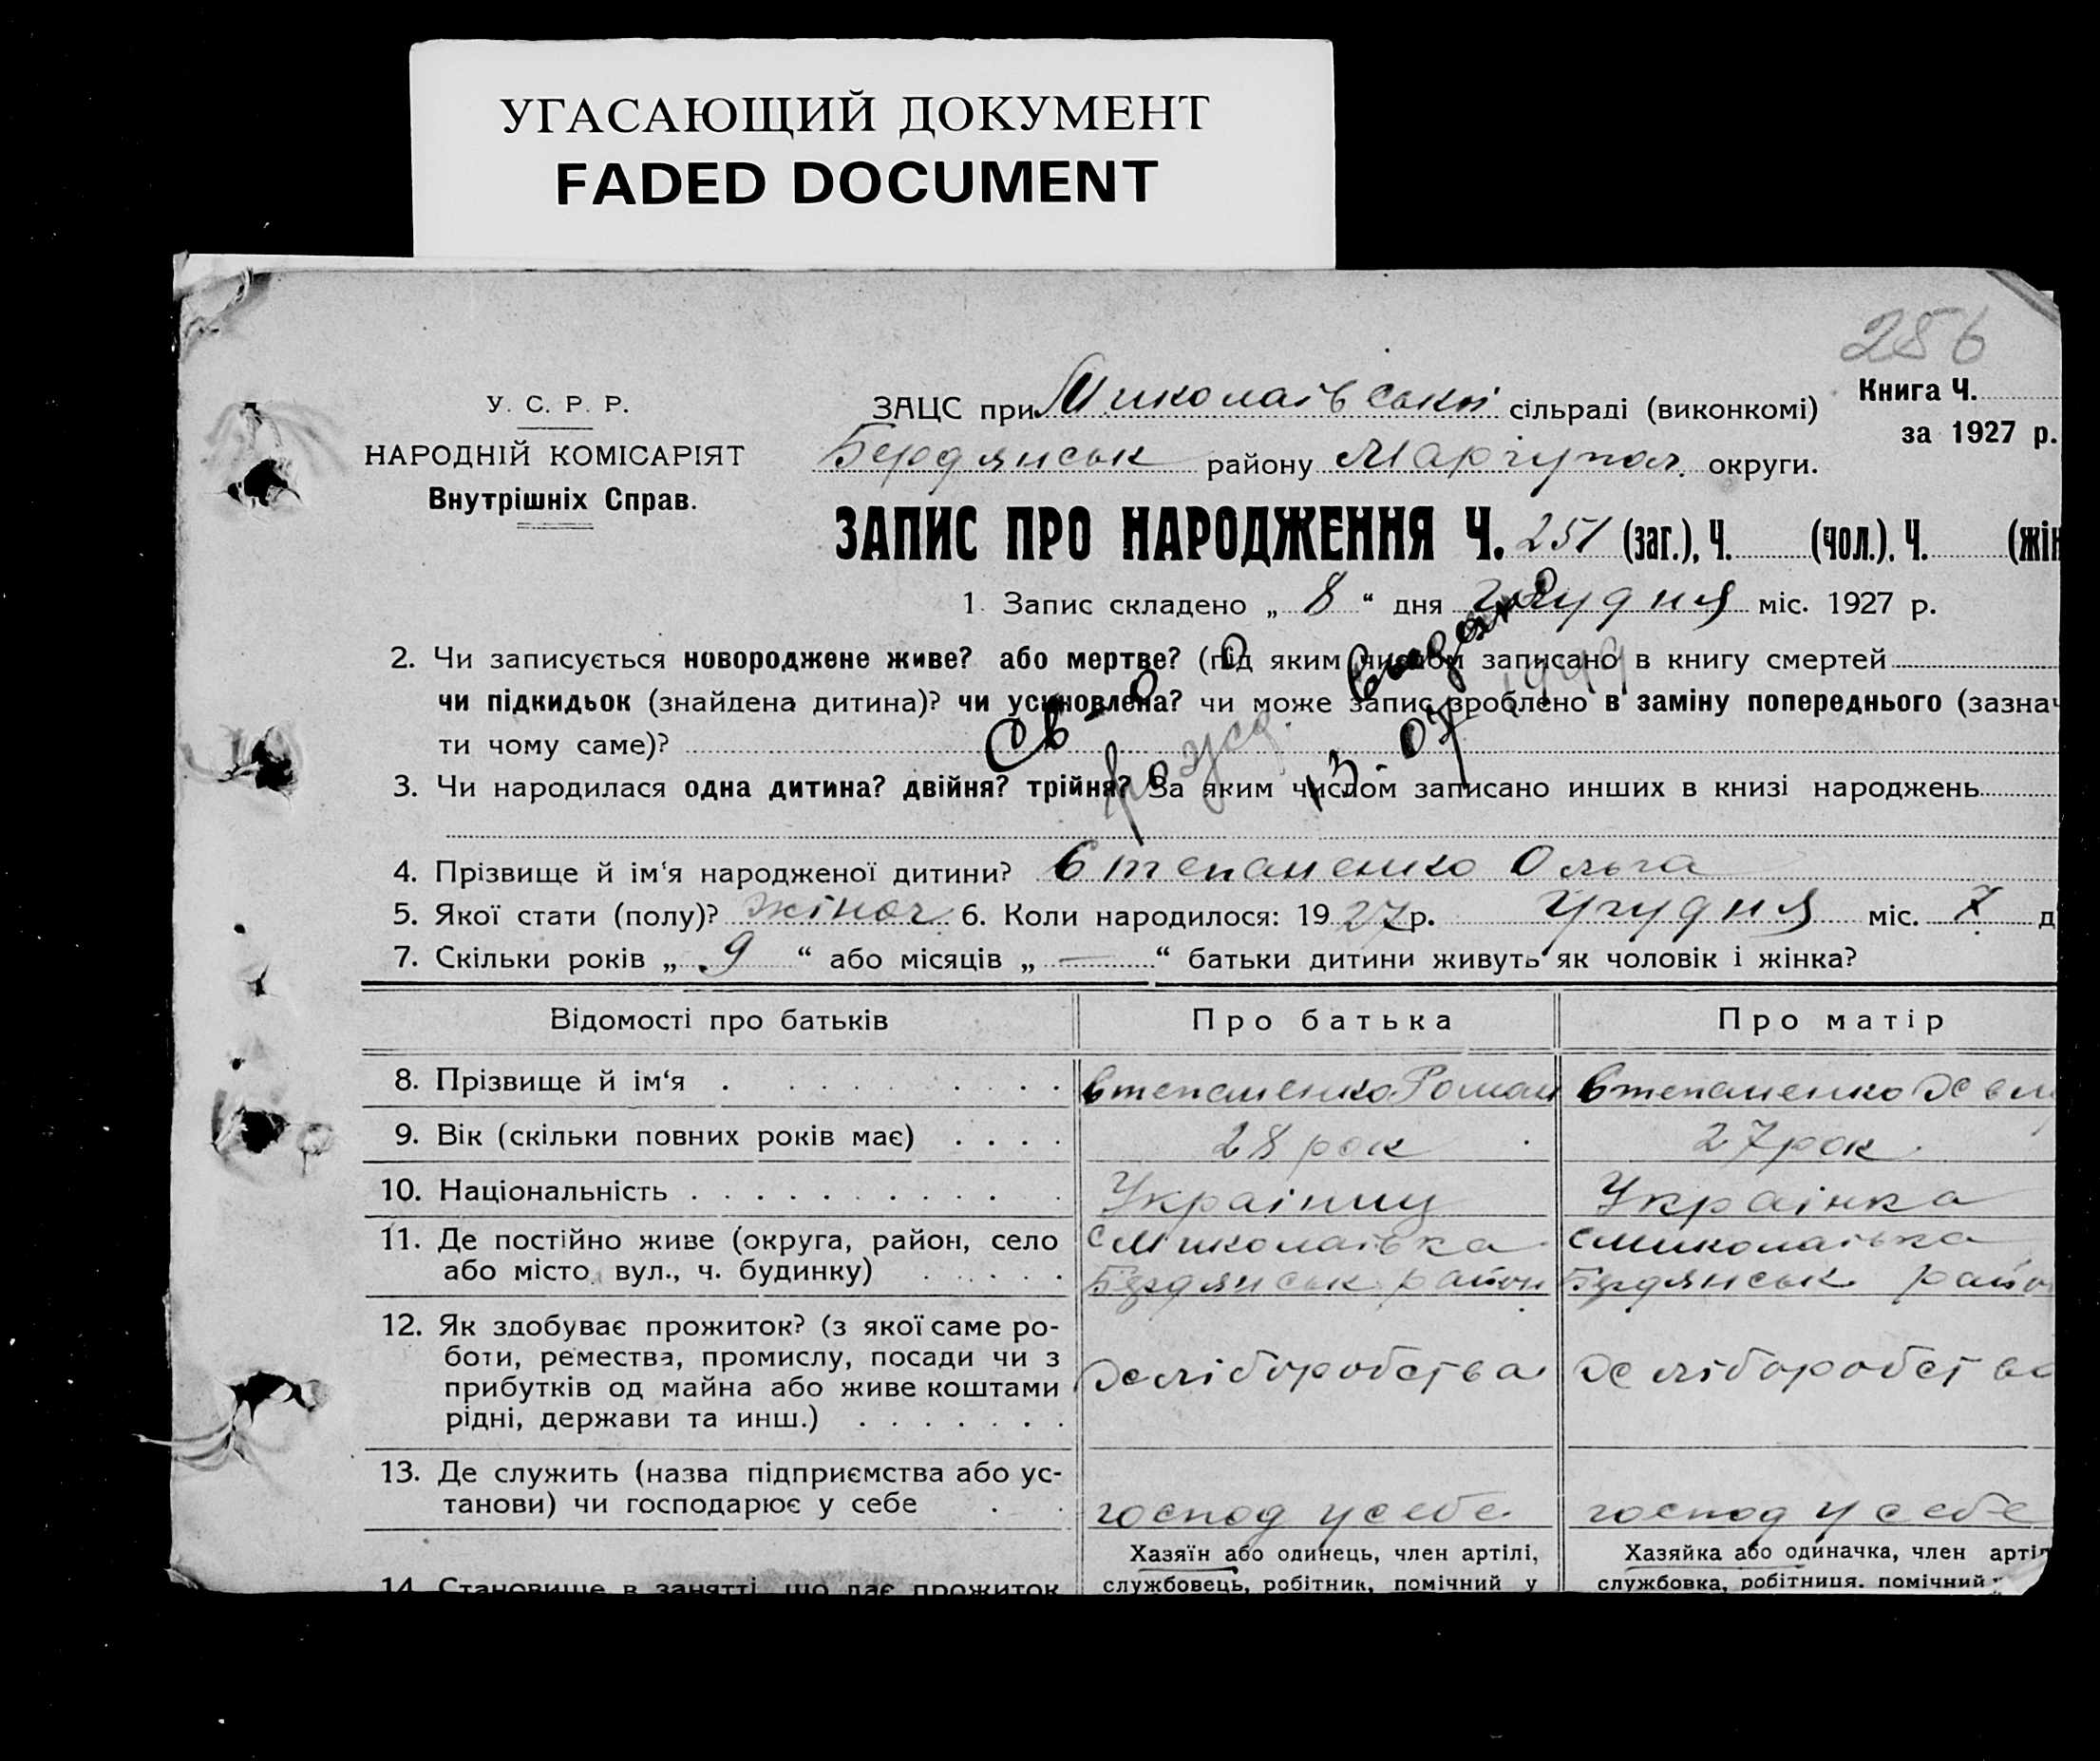 УГАСАЮЩИЙ ДОКУМЕНТ
FADED DOCUMENT
256
У. С. Р. Р.
НАРОДНІЙ КОМІСАРІЯТ
Внутрішніх Справ.
Книга Ч.
за 1927 р.
ЗАЦС при Миколаівській сільраді (виконкомі)
Бердянськ району Маріупол. округи.
ЗАПИС ПРО НАРОДЖЕННЯ Ч. 251 (заг.), Ч. (чол.), Ч. (жін
1. Запис складено „ 8 “ дня грудня міс. 1927 р.
2. Чи записується новороджене живе? або мертве? (під яким числом записано в книгу смертей
чи підкидьок (знайдена дитина)? чи усиновлена? чи може запис зроблено в заміну попереднього (зазнач
ти чому саме)?
Св-во выдано
3. Чи народилася одна дитина? двійня? трійня? За яким числом записано инших в книзі народжень
4. Прізвище й ім‘я народженої дитини? Степаненко Ольга
5. Якої стати (полу)? жіноч 6. Коли народилося: 1927 р. Грудня міс. 7 д
7. Скільки років „ 9 “ або місяців „ — “ батьки дитини живуть як чоловік і жінка?
Відомості про батьків Про батька Про матір
8. Прізвище й ім‘я . Степаненко Роман Степаненко
9. Вік (скільки повних років має) . . . . 28 рок 27 рок
10. Національність . . . . . . . . . . Украінец Украінка
11. Де постійно живе (округа, район, село
або місто, вул., ч. будинку) . . . . .
с Миколаівка с Миколаівка
Бердянськ район Бердянськ район
12. Як здобуває прожиток? (з якої саме ро-
боти, ремества, промислу, посади чи з
прибутків од майна або живе коштами
рідні, держави та инш.) . . . . . . .
Хліборобства Хліборобства
13. Де служить (назва підприємства або ус-
танови) чи господарює у себе
господ у себе господ у себе
Хазяїн або одинець, член артілі, Хазяйка або одиначка, член артіл
14. Становище в занятті, що дає прожиток службовець, робітник, помічний у службовка, робітниця, помічний